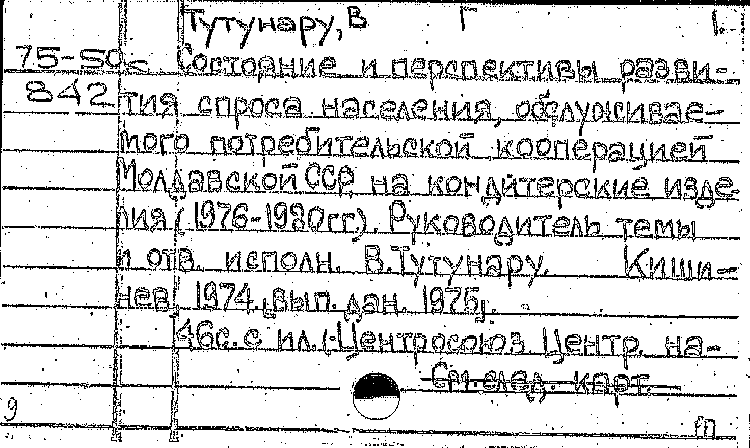 Тутунару, В Г 1.
75-50 Состояние и перспективы разви-
842 тия спроса населения, обслуживае-
мого потребительской кооперацией
Молдавской ССР на кондитерские изде-
лия (1976-1980гг). Руководитель темы
и отв. исполн. В.Тутунару. Киши-
нев, 1974, [вып. дан. 1975].
46с. с ил. (Центросоюз. Центр. на-
См. след. карт.
9